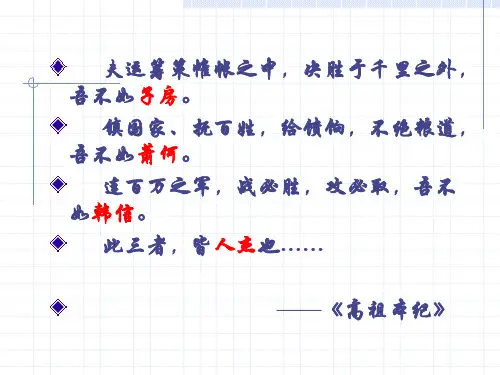 夫运筹策帷帐之中，决胜于千里之外，
吾不如子房。
镇国家、抚百姓，给馈饷，不绝粮道，
吾不如萧何。
连百万之军，战必胜，攻必取，吾不
如韩信。
此三者，皆人杰也……
——《高祖本纪》